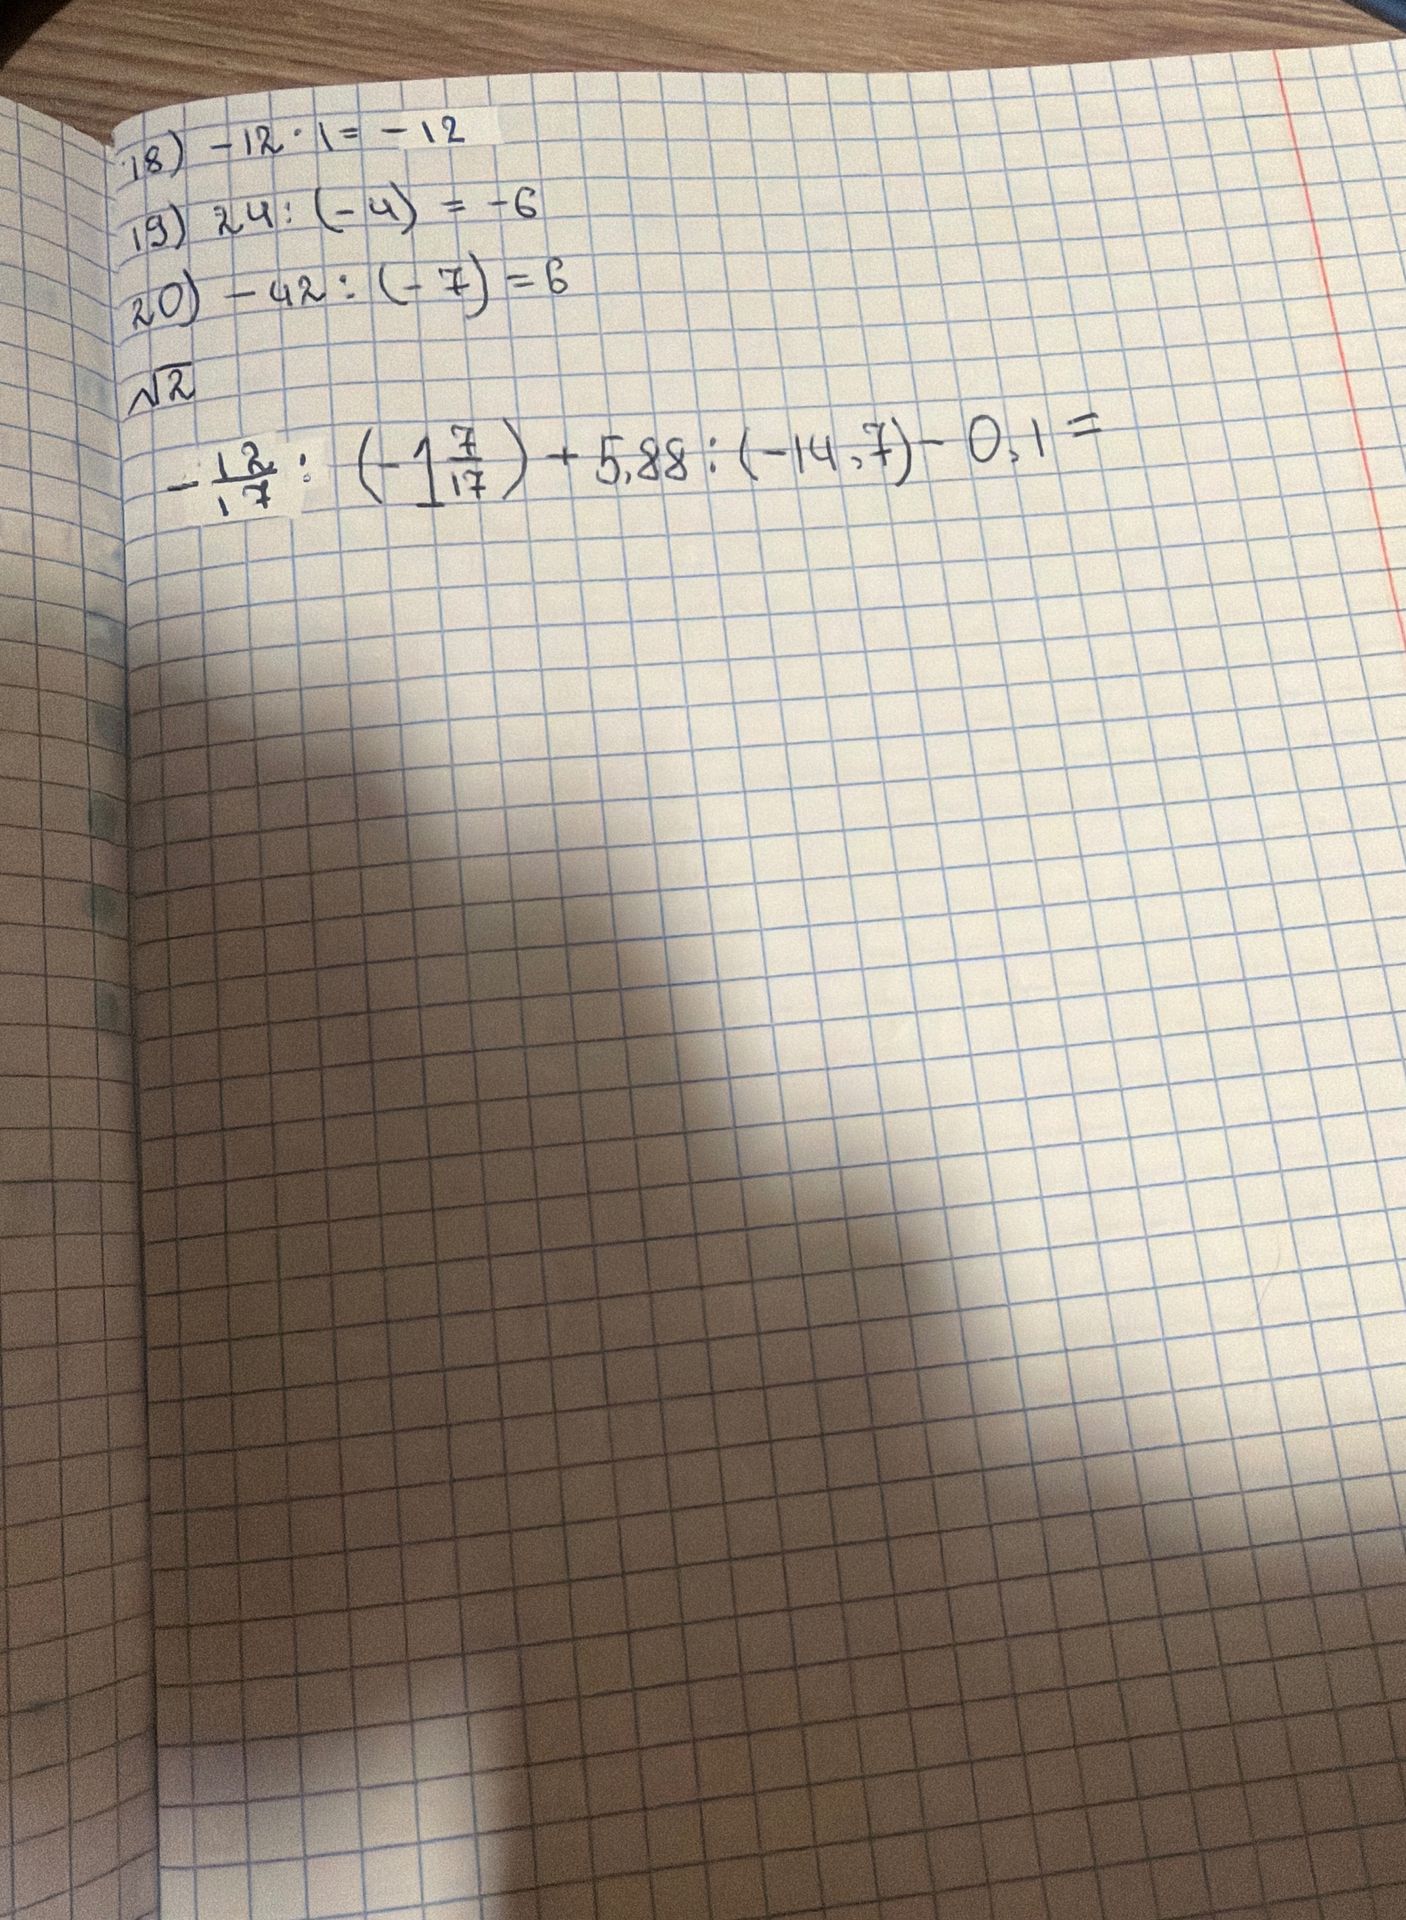 18) -12·1=-12
19) 24:(-4) = -6
20) -42:(-7)=6
√2
-12/17 : (-1 7/17) + 5,88:(-14,7)-0,1=